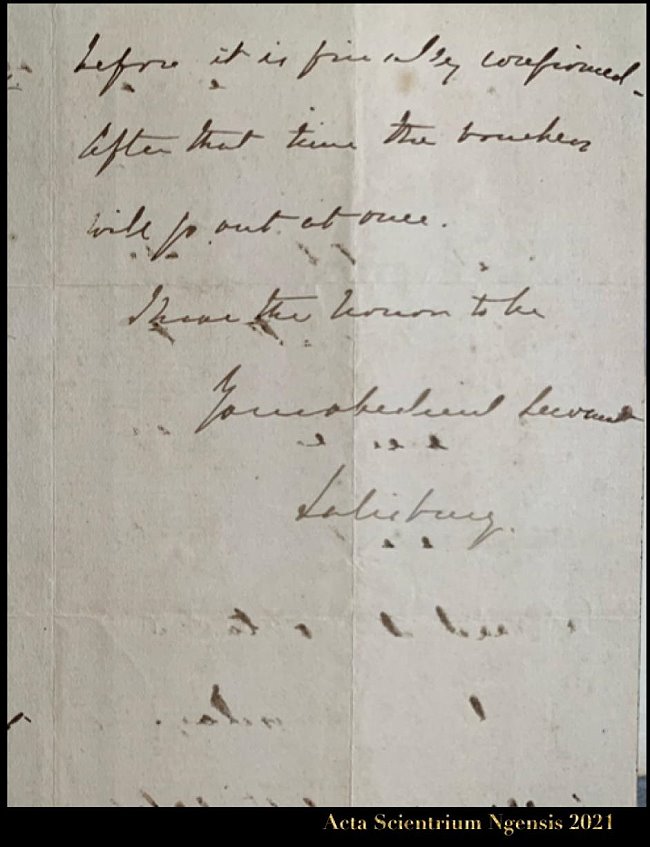 before it is finally confirmed.
After that time the vouchers
will go out at once.
I have the honor to be
Your obedient servant
Salisbury.
Acta Scientrium Ngensis 2021